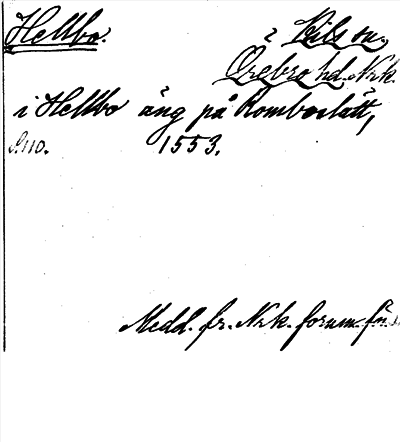 Hellbo. i Kils sn.
Örebro hd. Nrk.
i Hellbo äng på Romboslätt,
S. 110. 1553.
Medd. fr. Nrk. fornm. för.